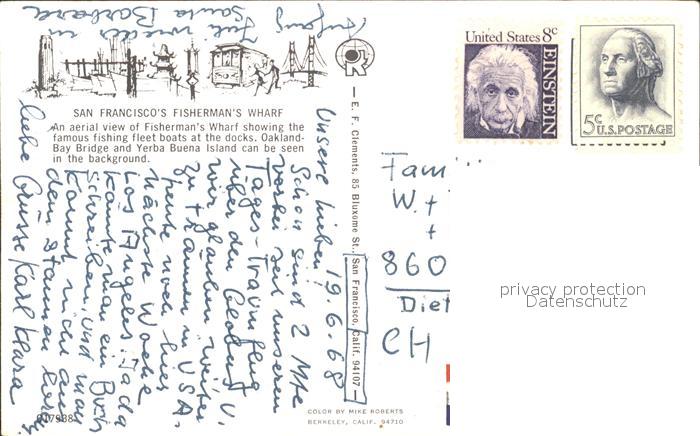 United States 8c
EINSTEIN
5c
U.S. POSTAGE
SAN FRANCISCO'S FISHERMAN'S WHARF
An aerial view of Fisherman's Wharf showing the
famous fishing fleet boats at the docks. Oakland-
Bay Bridge and Yerba Buena Island can be seen
in the background.
E. F. Clements, 85 Bluxome St., San Francisco, Calif. 94107
19.6.68
Unsere Lieben!
Schon sind 2 Mte
vorbei seit unserem
Tages-Traumflug
über den Globus u.
wir glauben weiter
zu träumen in USA.
heute noch hier
nächste Woche
Los Angeles. Da
könnte man ein Buch
schreiben und man
kommt nicht aus
dem Staunen heraus
liebe Grüsse Karl Klara
Anfang
Juli wieder in
Santa Barbara
Fam
W. +
+
860
Diet
CH
COLOR BY MIKE ROBERTS
BERKELEY, CALIF. 94710
privacy protection
Datenschutz